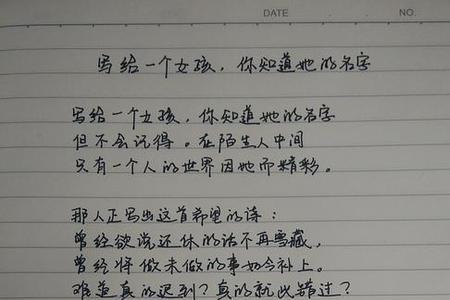 DATE NO.
写给一个女孩，你知道她的名字
写给一个女孩，你知道她的名字
但不会记得。在陌生人中间
只有一个人的世界因她而精彩。
那人正写出这首希望的诗：
曾经欲说还休的话不再雪藏，
曾经将做未做的事如今补上。
难道真的迟到？真的就此错过？